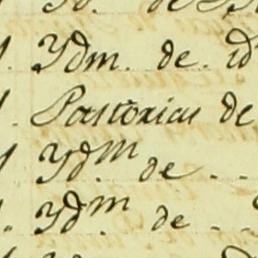 Ydm. de. id
Pastoricas de
Yd.m de . . .
Yd.m de . .